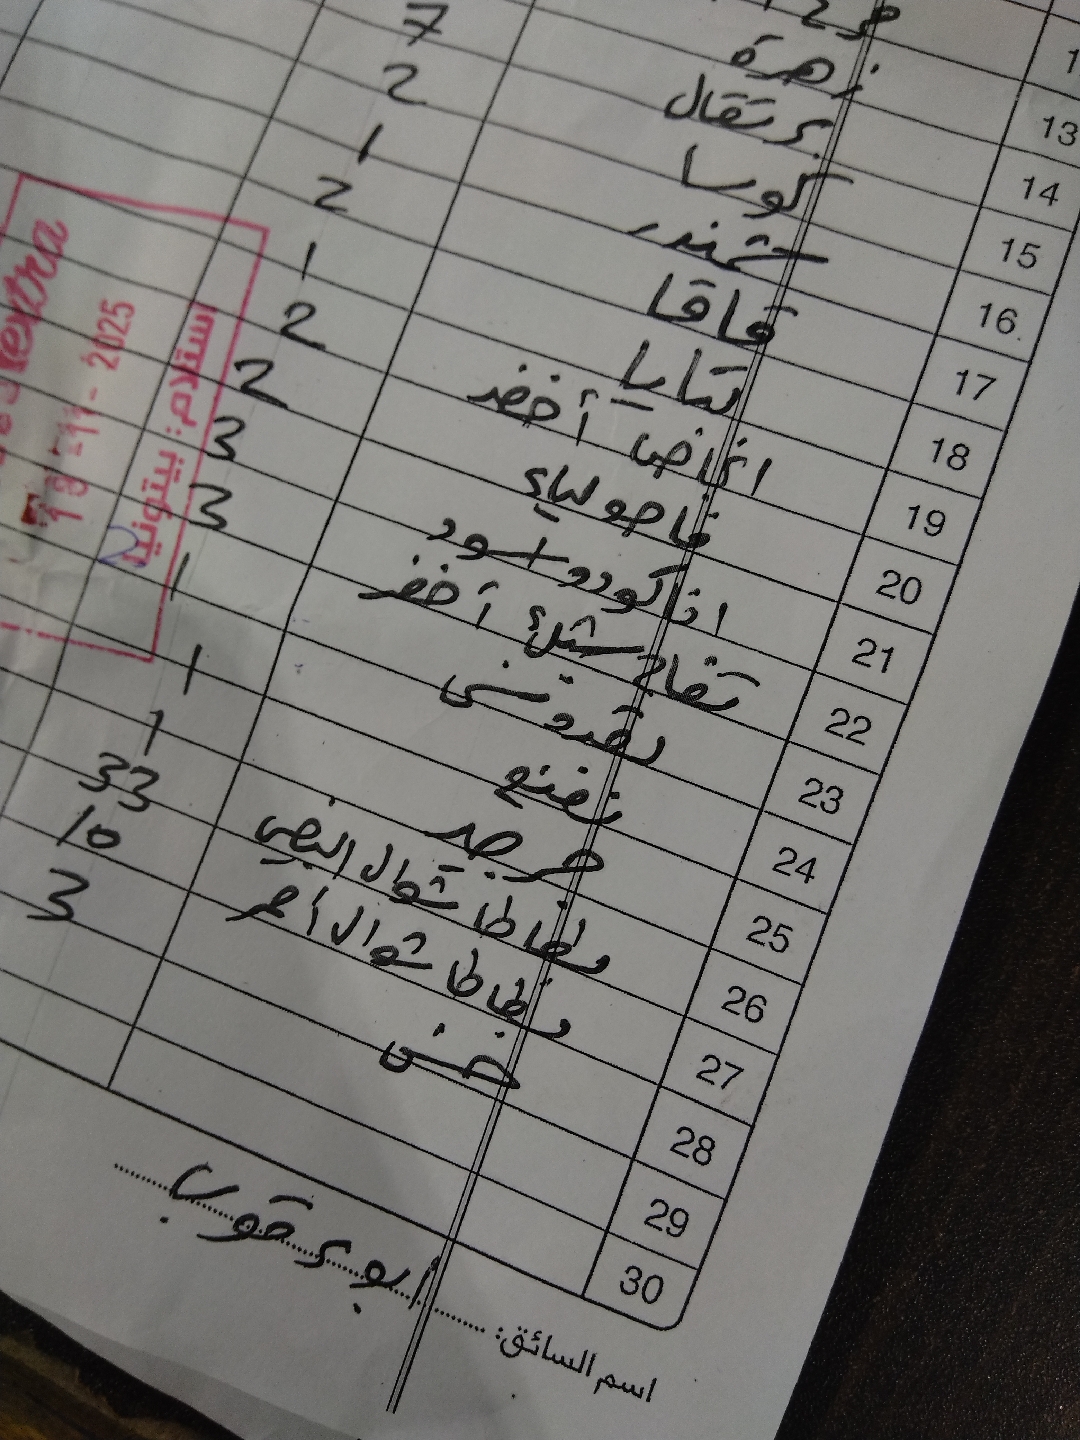 13 زهرة 7
14 برتقال 2
15 كوسا 1
16 شمندر 2
17 فافا 1
18 بتايا 2
19 اجاص أخضر 2
20 فاصوليا 3
21 افاكودو اسود 3
22 تفاح أخضر 1
23 بقدونس 1
24 نعنع 1
25 جرجير
26 بطاطا شوال ابيض 33
27 بطاطا شوال أحمر 10
28 خس 3
29
30
اسم السائق: ابو يعقوب
extra
18-11-2025
استلام: بيتونيا